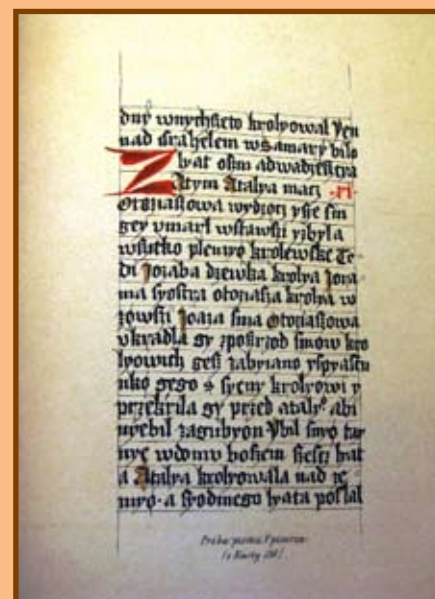 dnÿ wnychszeto krolyowal Yeu
nad israhelem wSamarÿ bilo
lyat osm adwadzescya
Zatym Atalya macz
Otoziaszowa wydzocz ysze sin
gey vmarl wstawszi yzbyla
wszitko plemyo krolewske Te
di Jozaba dzewka krolya Jora
ma syostra otoziasza krolya w
zowszi Joaza sina Otoziaszowa
vkradla gy zposrzod sinow kro
lyowich gesz zabiyano yspyastu
nko gego z syeny krolyowi y
przekrila gy przed ataly° abi
nyebil zagubyon Ybil snyo tay
nye wdomu bozem szescz lyat
a Atalya krolyowala nad ze
myo · a syodmego lyata poslal
Próba pisma V pisarza